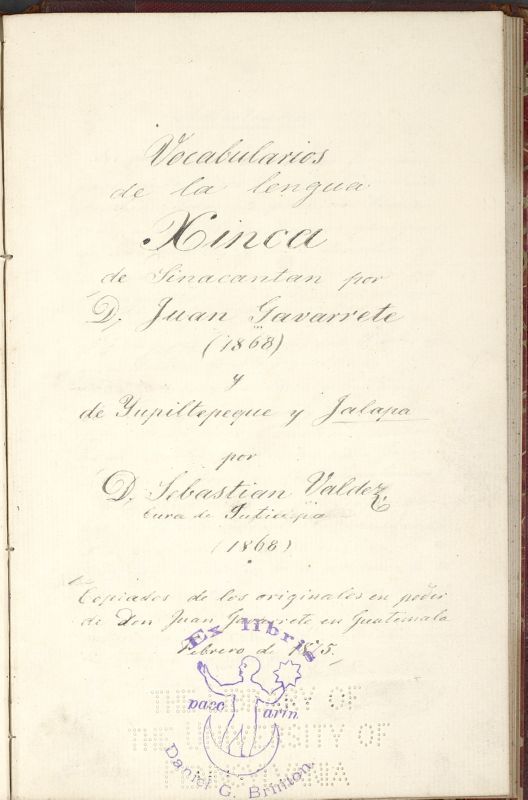 Vocabularios
de la lengua
Xinca
de Sinacantan por
D. Juan Gavarrete
(1868)
y
de Yupiltepeque y Jalapa
por
D. Sebastian Valdez,
Cura de Jutiapa
(1868)
Copiados de los originales en poder
de Don Juan Gavarrete en Guatemala
Febrero de 1875.
Ex libris
Daniel G. Brinton
THE LIBRARY OF
THE UNIVERSITY OF
PENNSYLVANIA